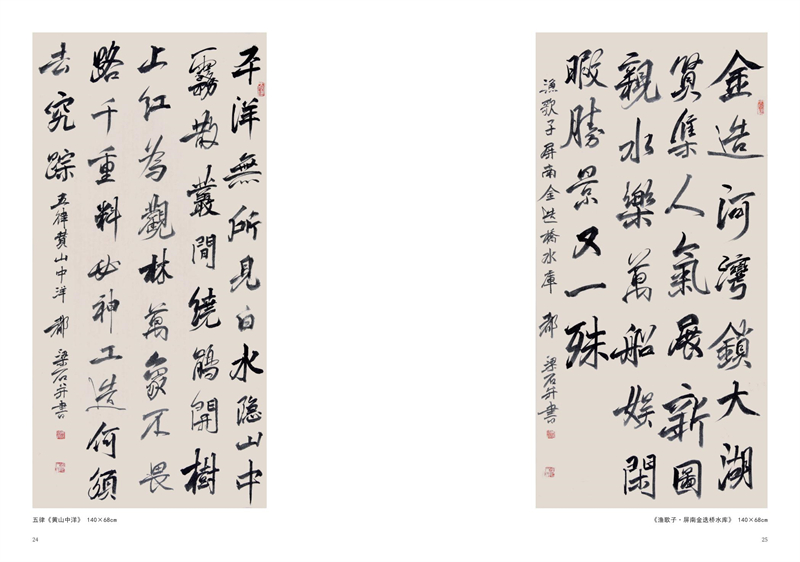 平洋無所見白水隐山中
霧散叢間繞鵑開樹
上紅為觀林萬象不畏
路千重料必神工造何須
去究踪
五律黄山中洋 梁石并書
五律《黄山中洋》 140×68cm
24
金造河灣鎖大湖
集人氣展新圖
親水樂萬船娛閑
暇勝景又一殊
渔歌子屏南金迭橋水庫 梁石并書
《渔歌子·屏南金迭桥水库》 140×68cm
25